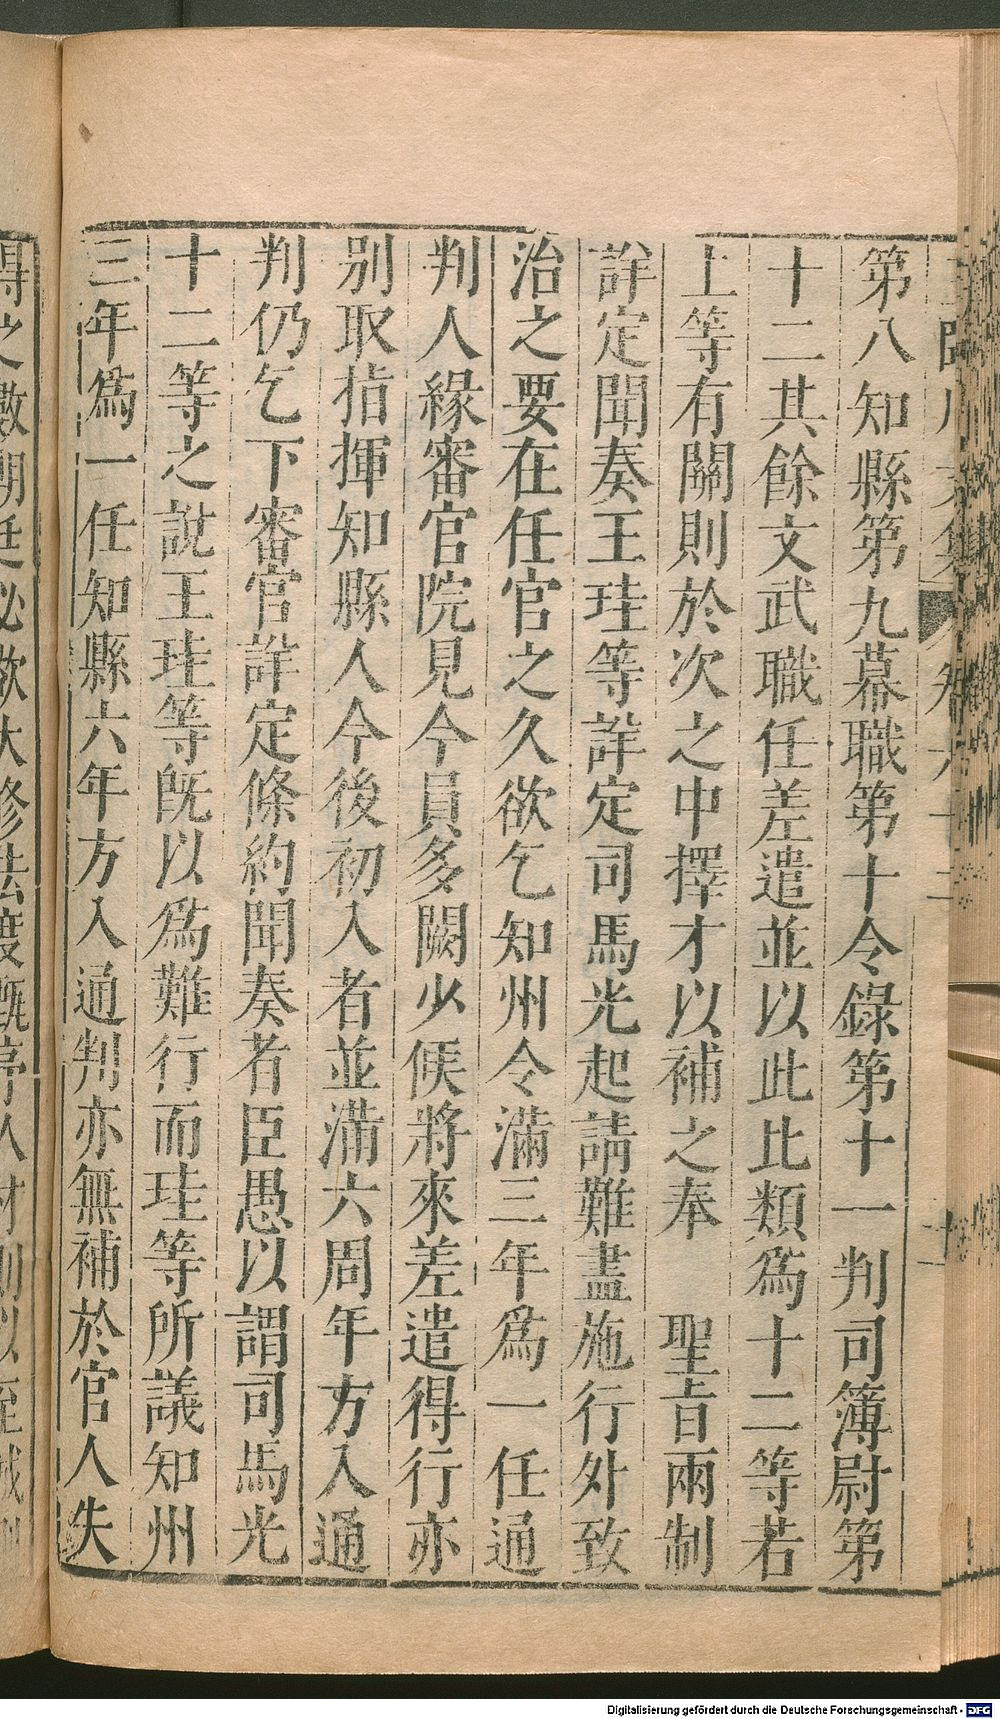 第八知縣第九幕職第十令錄第十一判司簿尉第
十二其餘文武職任差遣並以此比類爲十二等若
上等有闕則於次之中擇才以補之奉 聖旨兩制
詳定聞奏王珪等詳定司馬光起請難盡施行外致
治之要在任官之久欲乞知州令滿三年爲一任通
判人緣審官院見今員多闕少候將來差遣得行亦
別取指揮知縣人今後初入者並滿六周年方入通
判仍乞下審官詳定條約聞奏者臣愚以謂司馬光
十二等之說王珪等旣以爲難行而珪等所議知州
三年爲一任知縣六年方入通判亦無補於官人失
Digitalisierung gefördert durch die Deutsche Forschungsgemeinschaft - DFG